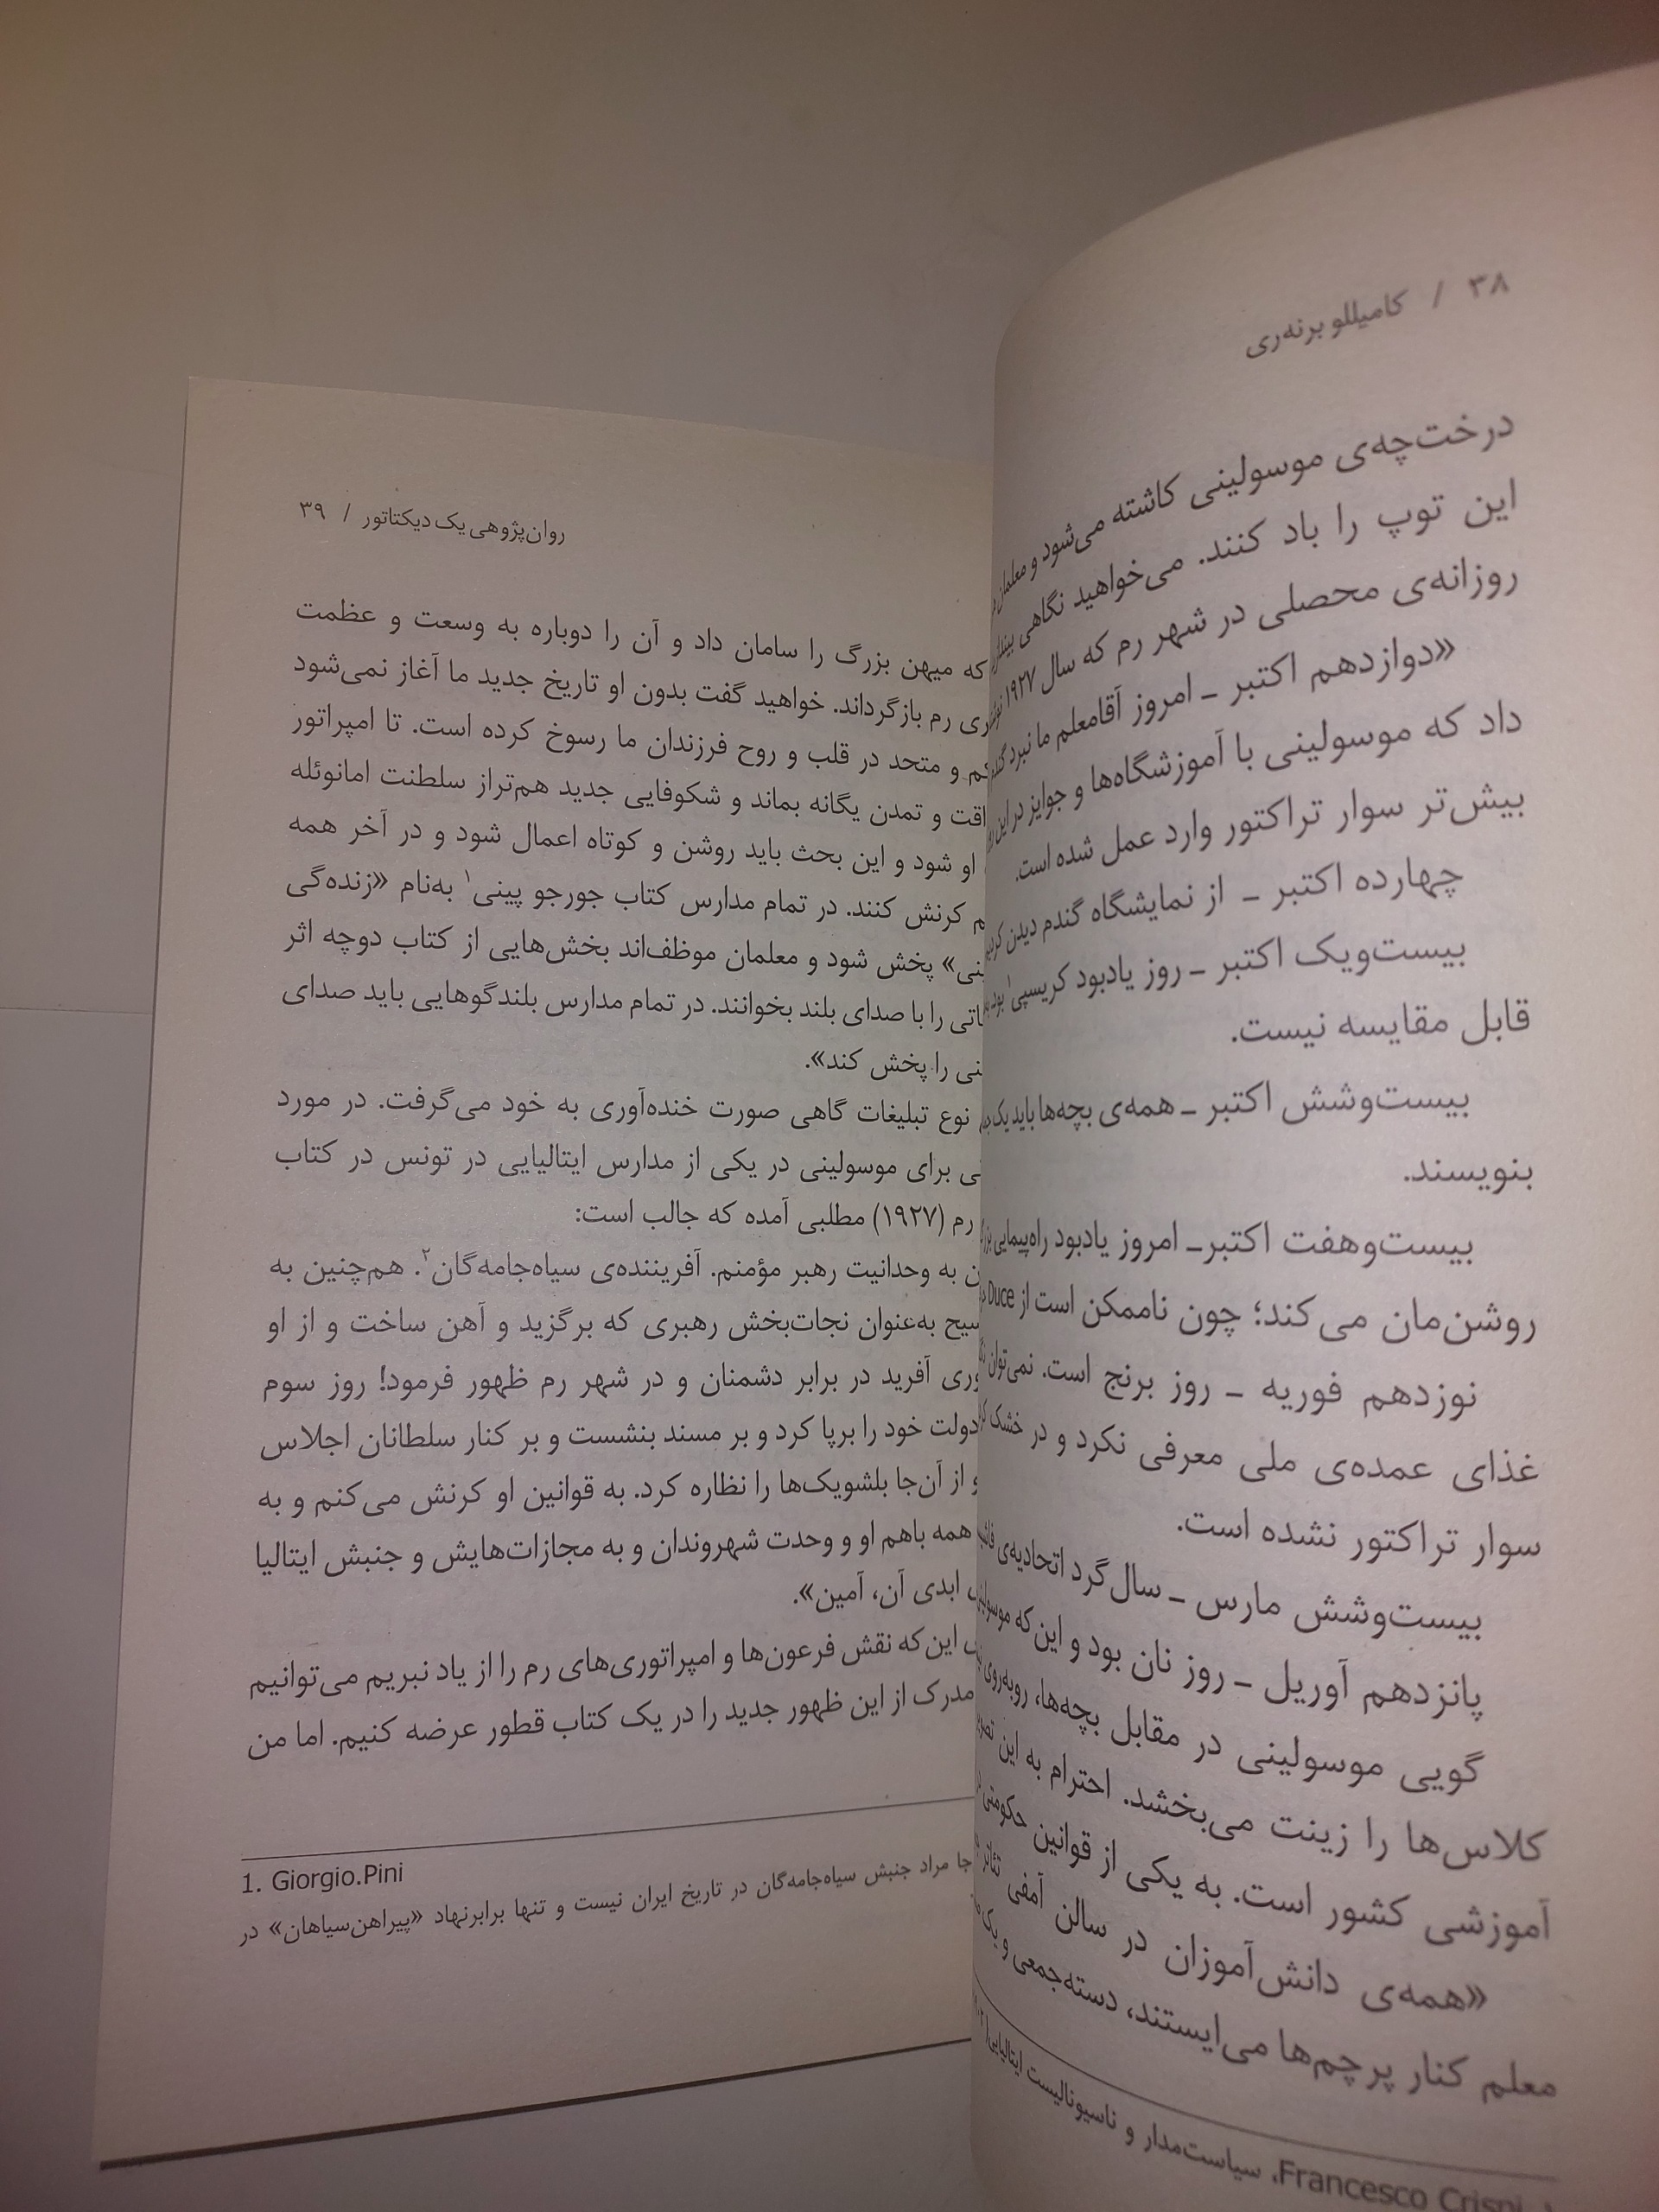 ۳۸ / کامیللو برنه‌ری
درخت‌چه‌ی موسولینی کاشته می‌شود و معلمان
این توپ را باد کنند. می‌خواهید نگاهی
روزانه‌ی محصلی در شهر رم که سال ۱۹۲۷
«دوازدهم اکتبر ـ امروز آقامعلم ما نبرد
داد که موسولینی با آموزشگاه‌ها و جوایز در این
بیش‌تر سوار تراکتور وارد عمل شده است.
چهارده اکتبر ـ از نمایشگاه گندم دیدن
بیست‌ویک اکتبر ـ روز یادبود کریسپی۱ بود
قابل مقایسه نیست.
بیست‌وشش اکتبر ـ همه‌ی بچه‌ها باید یک
بنویسند.
بیست‌وهفت اکتبر ـ امروز یادبود راه‌پیمایی
روشن‌مان می‌کند؛ چون ناممکن است از Duce
نوزدهم فوریه ـ روز برنج است. نمی‌توان
غذای عمده‌ی ملی معرفی نکرد و در خشک
سوار تراکتور نشده است.
بیست‌وشش مارس ـ سال‌گرد اتحادیه‌ی
پانزدهم آوریل ـ روز نان بود و این‌که
گویی موسولینی در مقابل بچه‌ها، روبه‌روی
کلاس‌ها را زینت می‌بخشد. احترام به این
آموزشی کشور است. به یکی از قوانین حکومتی
«همه‌ی دانش‌آموزان در سالن آمفی تئاتر
معلم کنار پرچم‌ها می‌ایستند، دسته‌جمعی و یک
Francesco Crispi، سیاست‌مدار و ناسیونالیست ایتالیایی
روان‌پژوهی یک دیکتاتور / ۳۹
که میهن بزرگ را سامان داد و آن را دوباره به وسعت و عظمت
رم بازگرداند. خواهید گفت بدون او تاریخ جدید ما آغاز نمی‌شود
و متحد در قلب و روح فرزندان ما رسوخ کرده است. تا امپراتور
و تمدن یگانه بماند و شکوفایی جدید هم‌تراز سلطنت امانوئله
او شود و این بحث باید روشن و کوتاه اعمال شود و در آخر همه
کرنش کنند. در تمام مدارس کتاب جورجو پینی۱ به‌نام «زنده‌گی
پخش شود و معلمان موظف‌اند بخش‌هایی از کتاب دوچه اثر
را با صدای بلند بخوانند. در تمام مدارس بلندگوهایی باید صدای
را پخش کند».
نوع تبلیغات گاهی صورت خنده‌آوری به خود می‌گرفت. در مورد
برای موسولینی در یکی از مدارس ایتالیایی در تونس در کتاب
رم (۱۹۲۷) مطلبی آمده که جالب است:
به وحدانیت رهبر مؤمنم. آفریننده‌ی سیاه‌جامه‌گان۲. هم‌چنین به
به‌عنوان نجات‌بخش رهبری که برگزید و آهن ساخت و از او
آفرید در برابر دشمنان و در شهر رم ظهور فرمود! روز سوم
دولت خود را برپا کرد و بر مسند بنشست و بر کنار سلطانان اجلاس
و از آن‌جا بلشویک‌ها را نظاره کرد. به قوانین او کرنش می‌کنم و به
همه باهم او و وحدت شهروندان و به مجازات‌هایش و جنبش ایتالیا
ابدی آن، آمین».
این‌که نقش فرعون‌ها و امپراتوری‌های رم را از یاد نبریم می‌توانیم
مدرک از این ظهور جدید را در یک کتاب قطور عرضه کنیم. اما من
1. Giorgio.Pini
جا مراد جنبش سیاه‌جامه‌گان در تاریخ ایران نیست و تنها برابرنهاد «پیراهن‌سیاهان» در